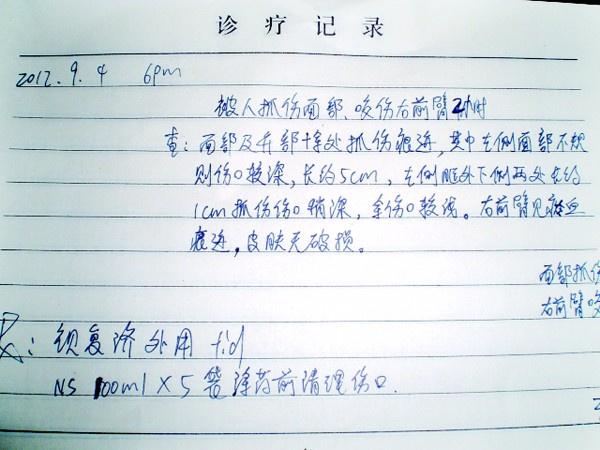 诊疗记录
2012.9.4 6pm
被人抓伤面部、咬伤右前臂2小时
查：面部及耳部十余处抓伤痕迹，其中左侧面部不规
则伤口较深，长约5cm，左侧眶外下侧两处长约
1cm抓伤伤口稍深，余伤口较浅。右前臂见
痕迹，皮肤无破损。
面部抓伤
右前臂咬
R：银复济外用 tid
NS 100ml×5 袋涂药前清理伤口.